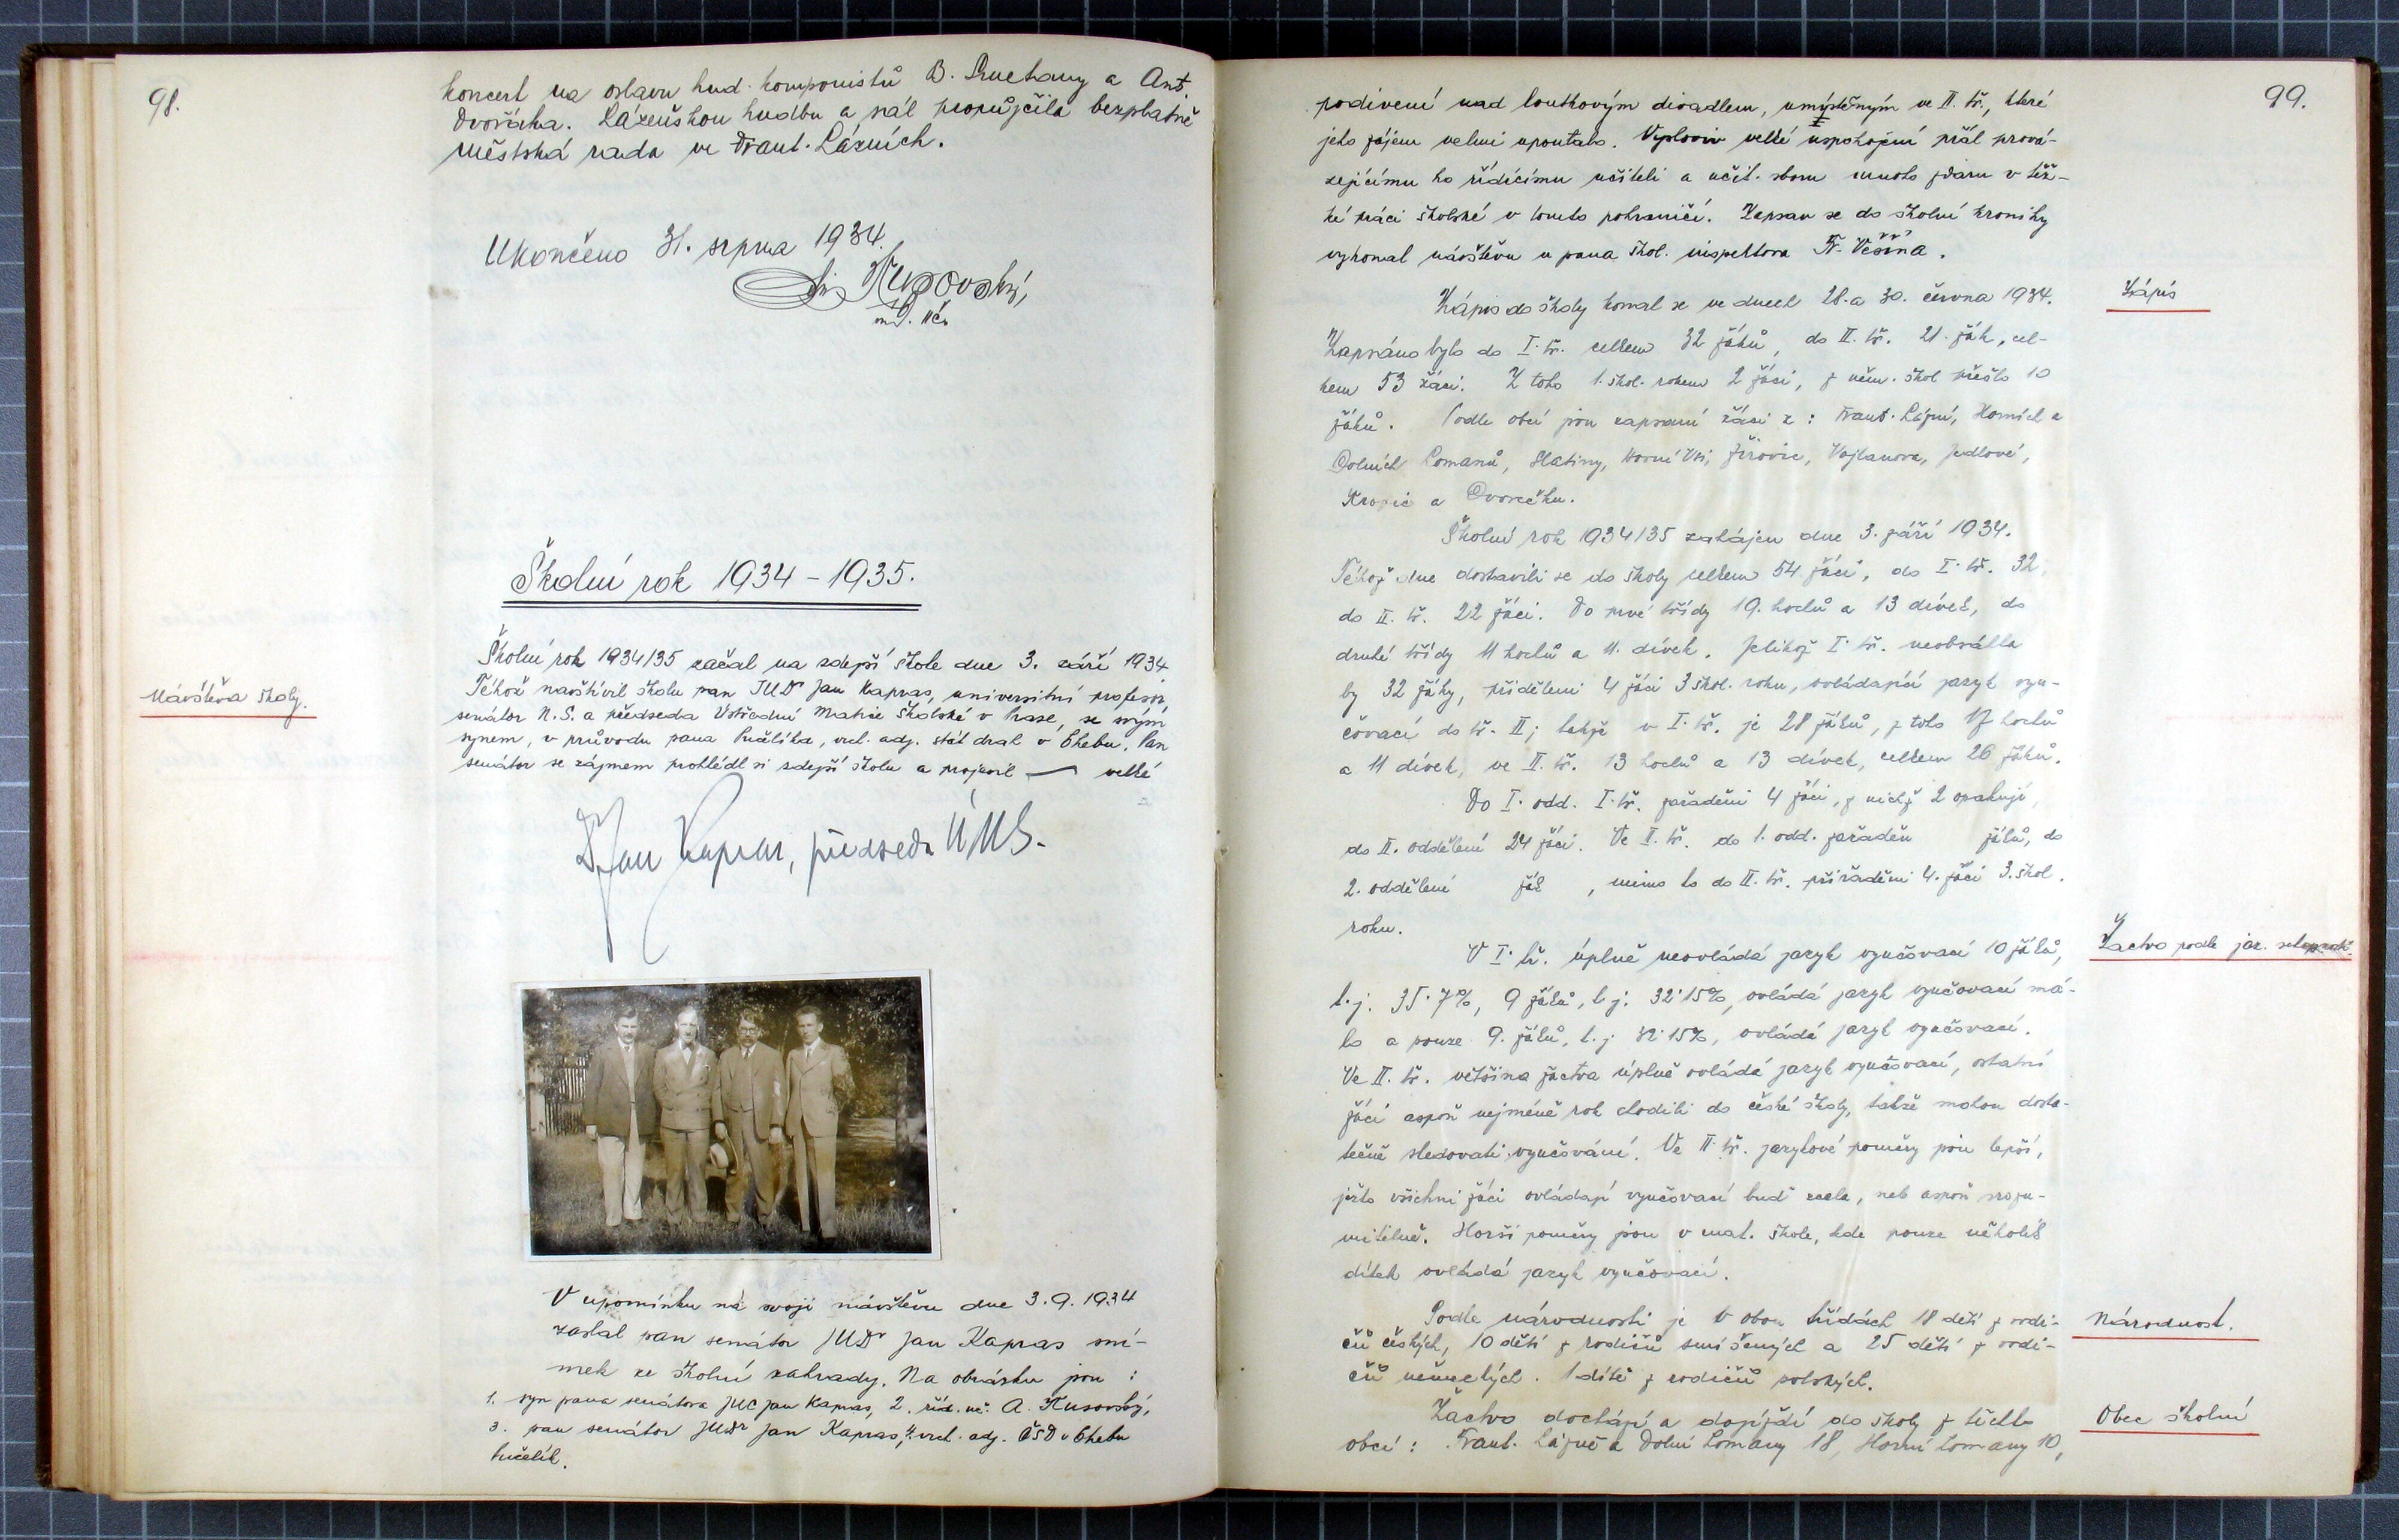 98.
koncert na oslavu hud. komponistů B. Smetany a Ant.
Dvořáka. Lázeňskou hudbu a sál propůjčila bezplatně
městská rada ve Frant. Lázních.
Ukončeno 31. srpna 1934.
Školní rok 1934 - 1935.
Školní rok 1934/35 začal na zdejší škole dne 3. září 1934
Návštěva školy.
Téhož navštívil školu pan JUDr Jan Kapras, universitní profesor
senátor N.S. a předseda Ústřední Matice školské v Praze, se svým
synem, v průvodu pana, vrch. adj. stát drah v Chebu. Pan
senátor se zájmem prohlédl si zdejší školu a projevil — velké
Dr Jan Kapras, předseda ÚMŠ.
V upomínku na svoji návštěvu dne 3.9.1934
zaslal pan senátor JUDr Jan Kapras sní-
mek ze školní zahrady. Na obrázku jsou :
1. syn pana senátora JUC Jan Kapras, 2. říd. uč. A.
3. pan senátor JUDr Jan Kapras, 4. vrch. adj. ČSD v Chebu
99.
podivení nad loutkovým divadlem, umístěným ve II. tř., které
jeho zájem velmi upoutalo. Vysloviv velké uspokojení přál prová-
zejícímu ho řídícímu učiteli a učit. sboru mnoho zdaru v těž-
ké práci školské v tomto pohraničí. Zapsav se do školní kroniky
vykonal návštěvu u pana škol. inspektora Fr. Věšína.
Zápis do školy konal se ve dnech 28. a 30. června 1934.
Zápis
Zapsáno bylo do I. tř. celkem 32 žáků, do II. tř. 21 žák, cel-
kem 53 žáci. Z toho 1. škol. rokem 2 žáci, z něm. škol přešlo 10
žáků. Podle obcí jsou zapsaní žáci z : Frant. Lázní, Horních a
Dolních Lomanů, Slatiny, Horní Vsi, Žírovic, Vojtanova, Jedlové,
Kropic a Dvorečku.
Školní rok 1934/35 zahájen dne 3. září 1934.
Téhož dne dostavili se do školy celkem 54 žáci, do I. tř. 32,
do II. tř. 22 žáci. Do prvé třídy 19. hochů a 13 dívek, do
druhé třídy 11 hochů a 11. dívek. Jelikož I. tř. neobsáhla
by 32 žáky, přiděleni 4 žáci 3 škol. roku, ovládající jazyk vyu-
čovací do tř. II; takže v I. tř. je 28 žáků, z toho 17 hochů
a 11 dívek, ve II. tř. 13 hochů a 13 dívek, celkem 26 žáků.
Do I. odd. I. tř. zařaděni 4 žáci, z nichž 2 opakují,
do II. oddělení 24 žáci. Ve II. tř. do 1. odd. zařaděn žáků, do
2. oddělení žák , mimo to do II. tř. přiřaděni 4. žáci 3. škol.
roku.
V I. tř. úplně neovládá jazyk vyučovací 10 žáků,
Žactvo podle jaz.
t.j. 35·7%, 9 žáků, t.j. 32·15%, ovládá jazyk vyučovací má-
lo a pouze 9. žáků, t.j. 32·15%, ovládá jazyk vyučovací.
Ve II. tř. většina žactva úplně ovládá jazyk vyučovací, ostatní
žáci aspoň nejméně rok chodili do české školy, takže mohou dosta-
tečně sledovati vyučování. Ve II. tř. jazykové poměry jsou lepší,
ježto všichni žáci ovládají vyučovací buď zcela, neb aspoň srozu-
mitelně. Horší poměry jsou v mat. škole, kde pouze několik
dítek ovládá jazyk vyučovací.
Podle národnosti je v obou třídách 18 dětí z rodi-
Národnost.
čů českých, 10 dětí z rodičů smíšených a 25 dětí z rodi-
čů německých. 1 dítě z rodičů polských.
Žactvo dochází a dojíždí do školy z těchto
Obec školní
obcí : Frant. Lázně a Dolní Lomany 18, Horní Lomany 10,